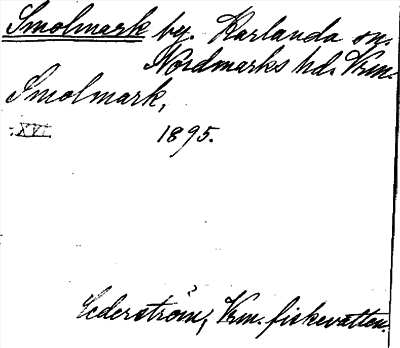 Smolmark by. Karlanda sn.
Nordmarks hd. Vrm.
Smolmark,
XVI 1895.
Cederström, Vrm. fiskevatten.